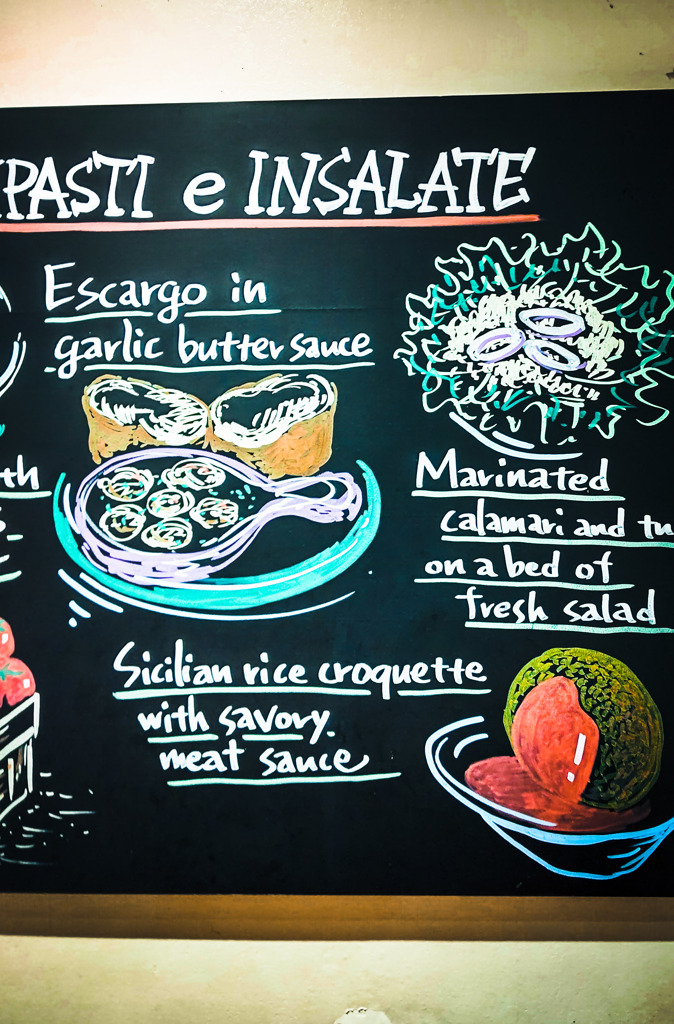 PASTI e INSALATE
Escargo in
garlic butter sauce
th
Marinated
calamari and tu
on a bed of
fresh salad
Sicilian rice croquette
with savory.
meat sauce